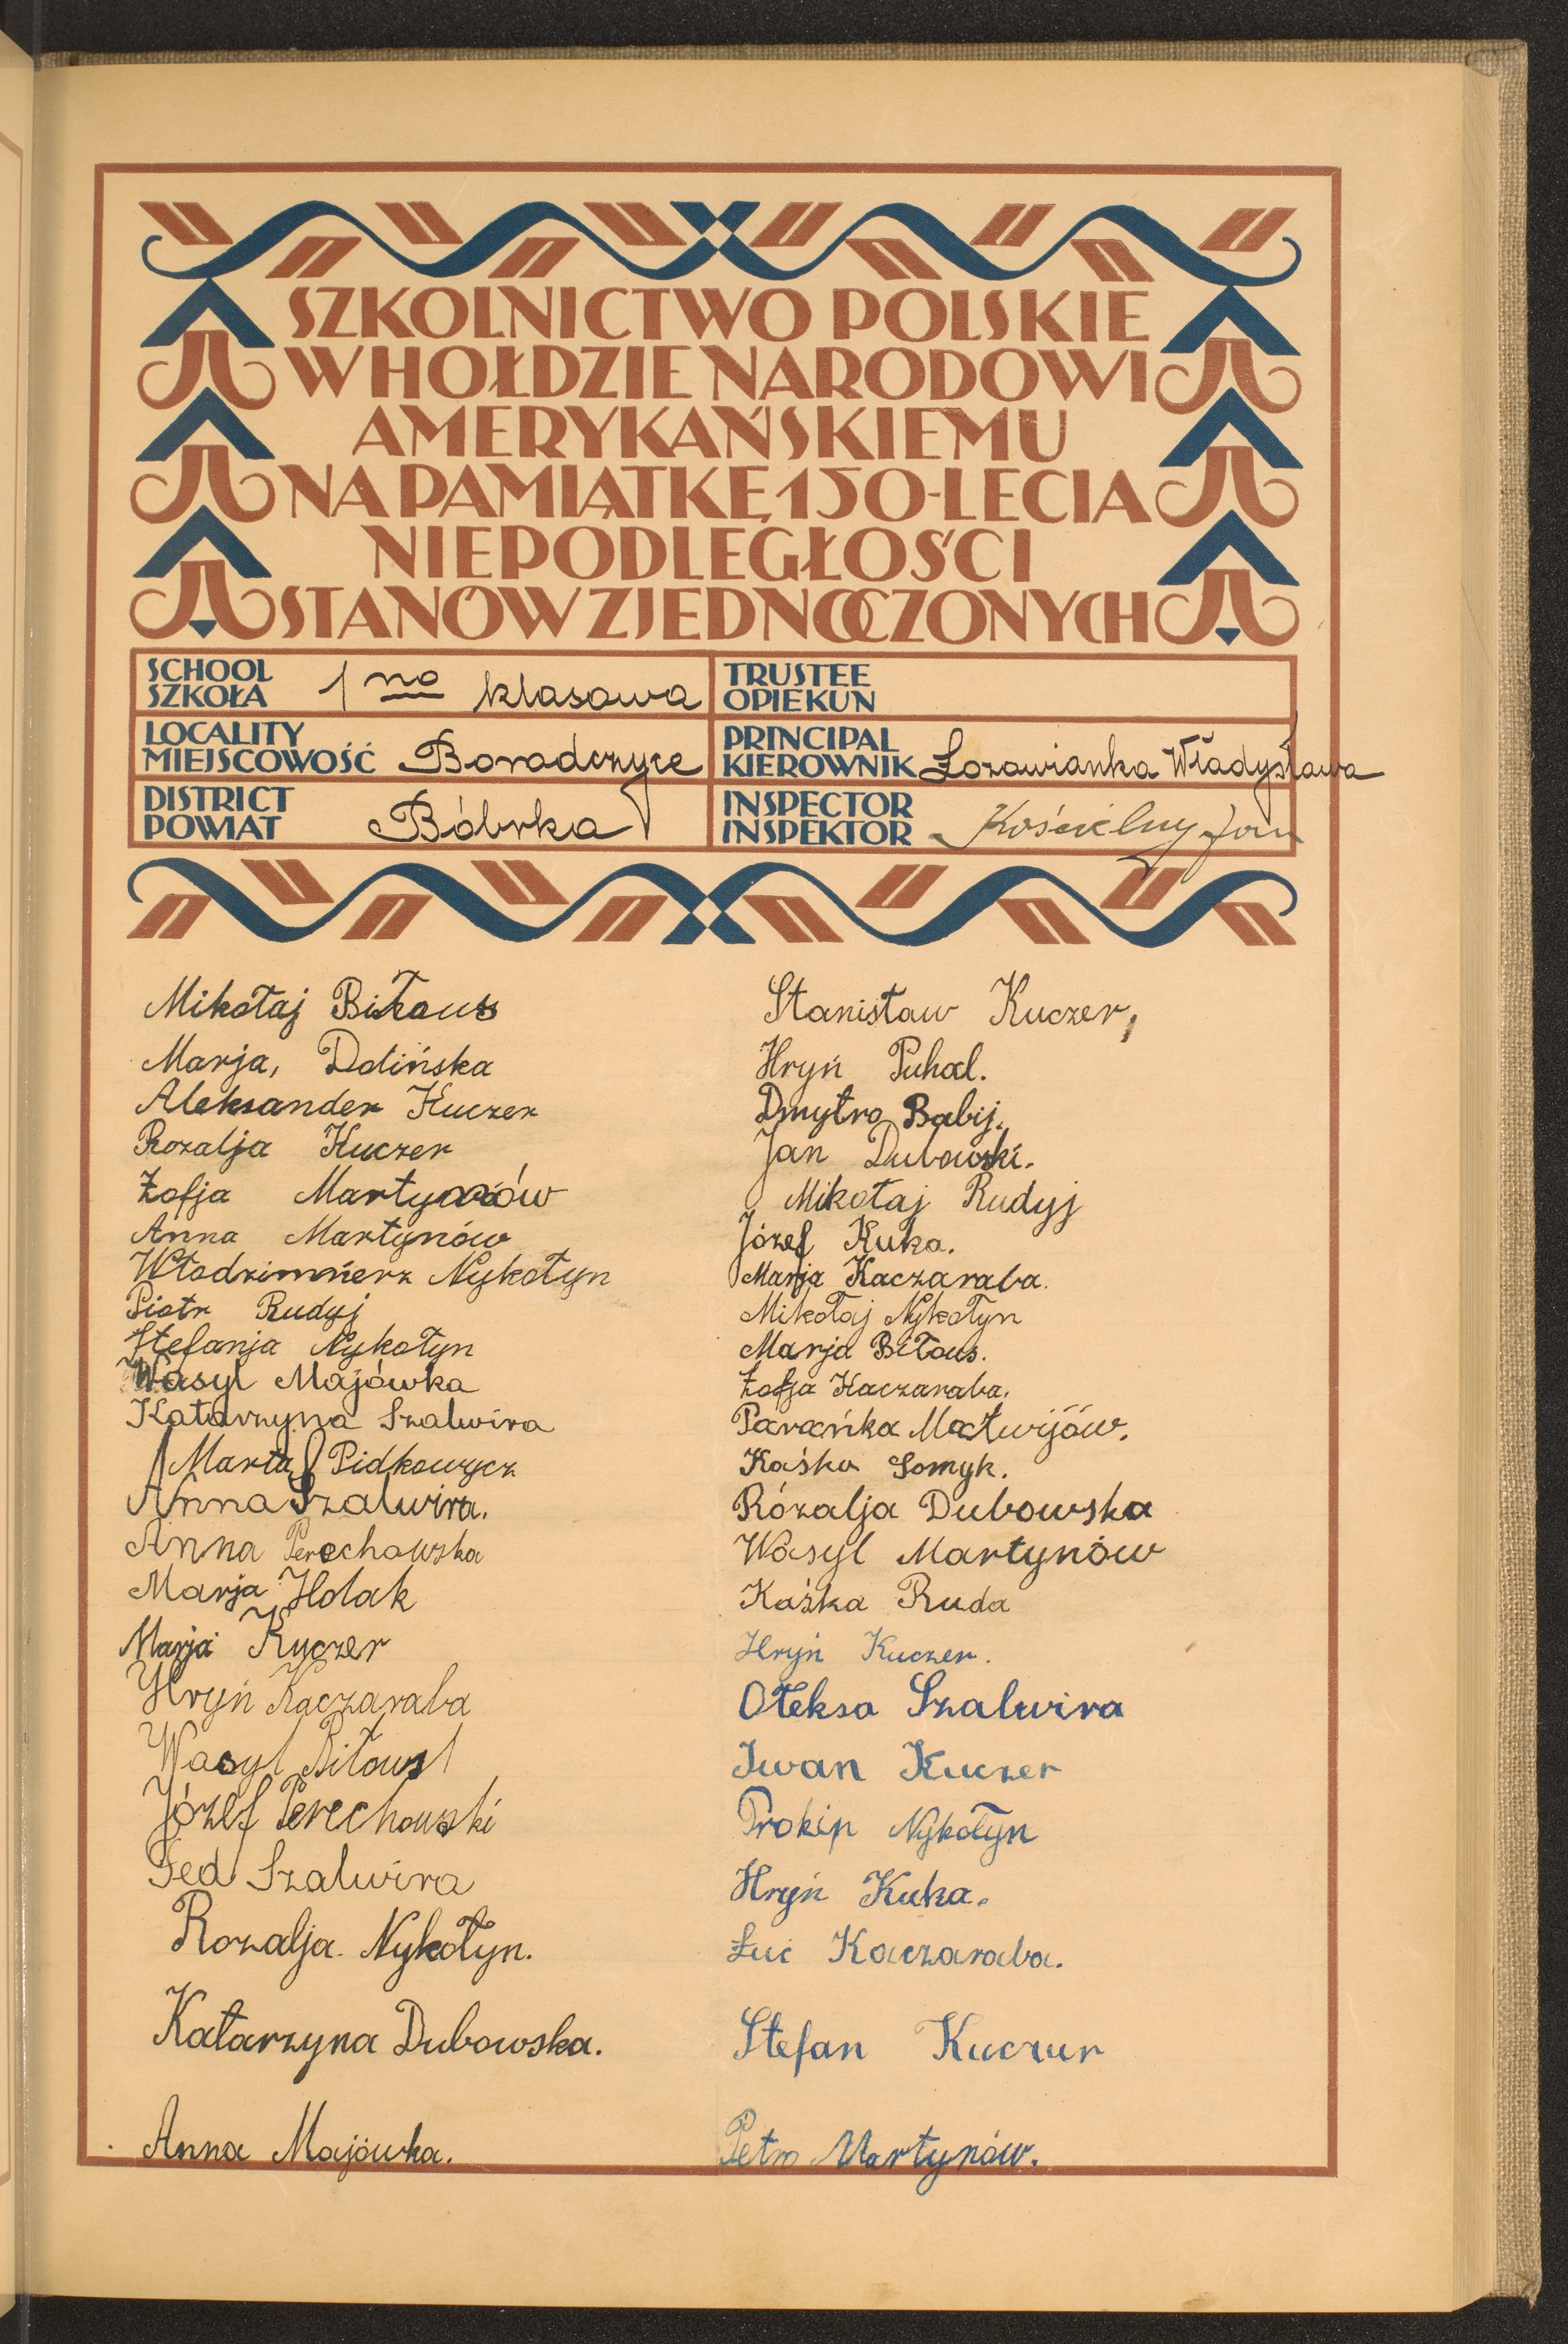 SZKOLNICTWO POLSKIE
W HOŁDZIE NARODOWI
AMERYKAŃSKIEMU
NA PAMIĄTKĘ 150-LECIA
NIEPODLEGŁOŚCI
STANÓW ZJEDNOCZONYCH
SCHOOL
SZKOŁA 1 no klasowa
TRUSTEE
OPIEKUN
LOCALITY
MIEJSCOWOŚĆ Borodczyce
PRINCIPAL
KIEROWNIK Łozowianka Władysława
DISTRICT
POWIAT Bóbrka
INSPECTOR
INSPEKTOR Kościelny Jan
Mikołaj Biłous
Marja, Dolińska
Aleksander Kuczer
Rozalja Kuczer
Zofja Martynów
Anna Martynów
Włodzimierz Nykołyn
Piotr Rudyj
Stefanja Nykołyn
Wasyl Majówka
Katarzyna Szalwira
Marta Pidkowycz
Anna Szalwira.
Anna Perechowska
Marja Holak
Marja Kuczer
Hryń Kaczaraba
Wasyl Biłous
Józef Perechowski
Fed Szalwira
Rozalja. Nykołyn.
Katarzyna Dubowska.
Anna Majówka.
Stanisław Kuczer,
Hryń Puhal.
Dmytro Babij.
Jan Dubowski.
Mikołaj Rudyj
Józef Kuka.
Marja Kaczaraba.
Mikołaj Nykołyn
Marja Biłous.
Zofja Kaczaraba.
Parańka Matwijów.
Kaśka Somyk.
Rózalja Dubowska
Wasyl Martynów
Kaśka Ruda
Hryń Kuczer.
Ołeksa Szalwira
Iwan Kuczer
Prokip Nykołyn
Hryń Kuka.
Łuć Kaczaraba.
Stefan Kuczur
Petro Martynów.